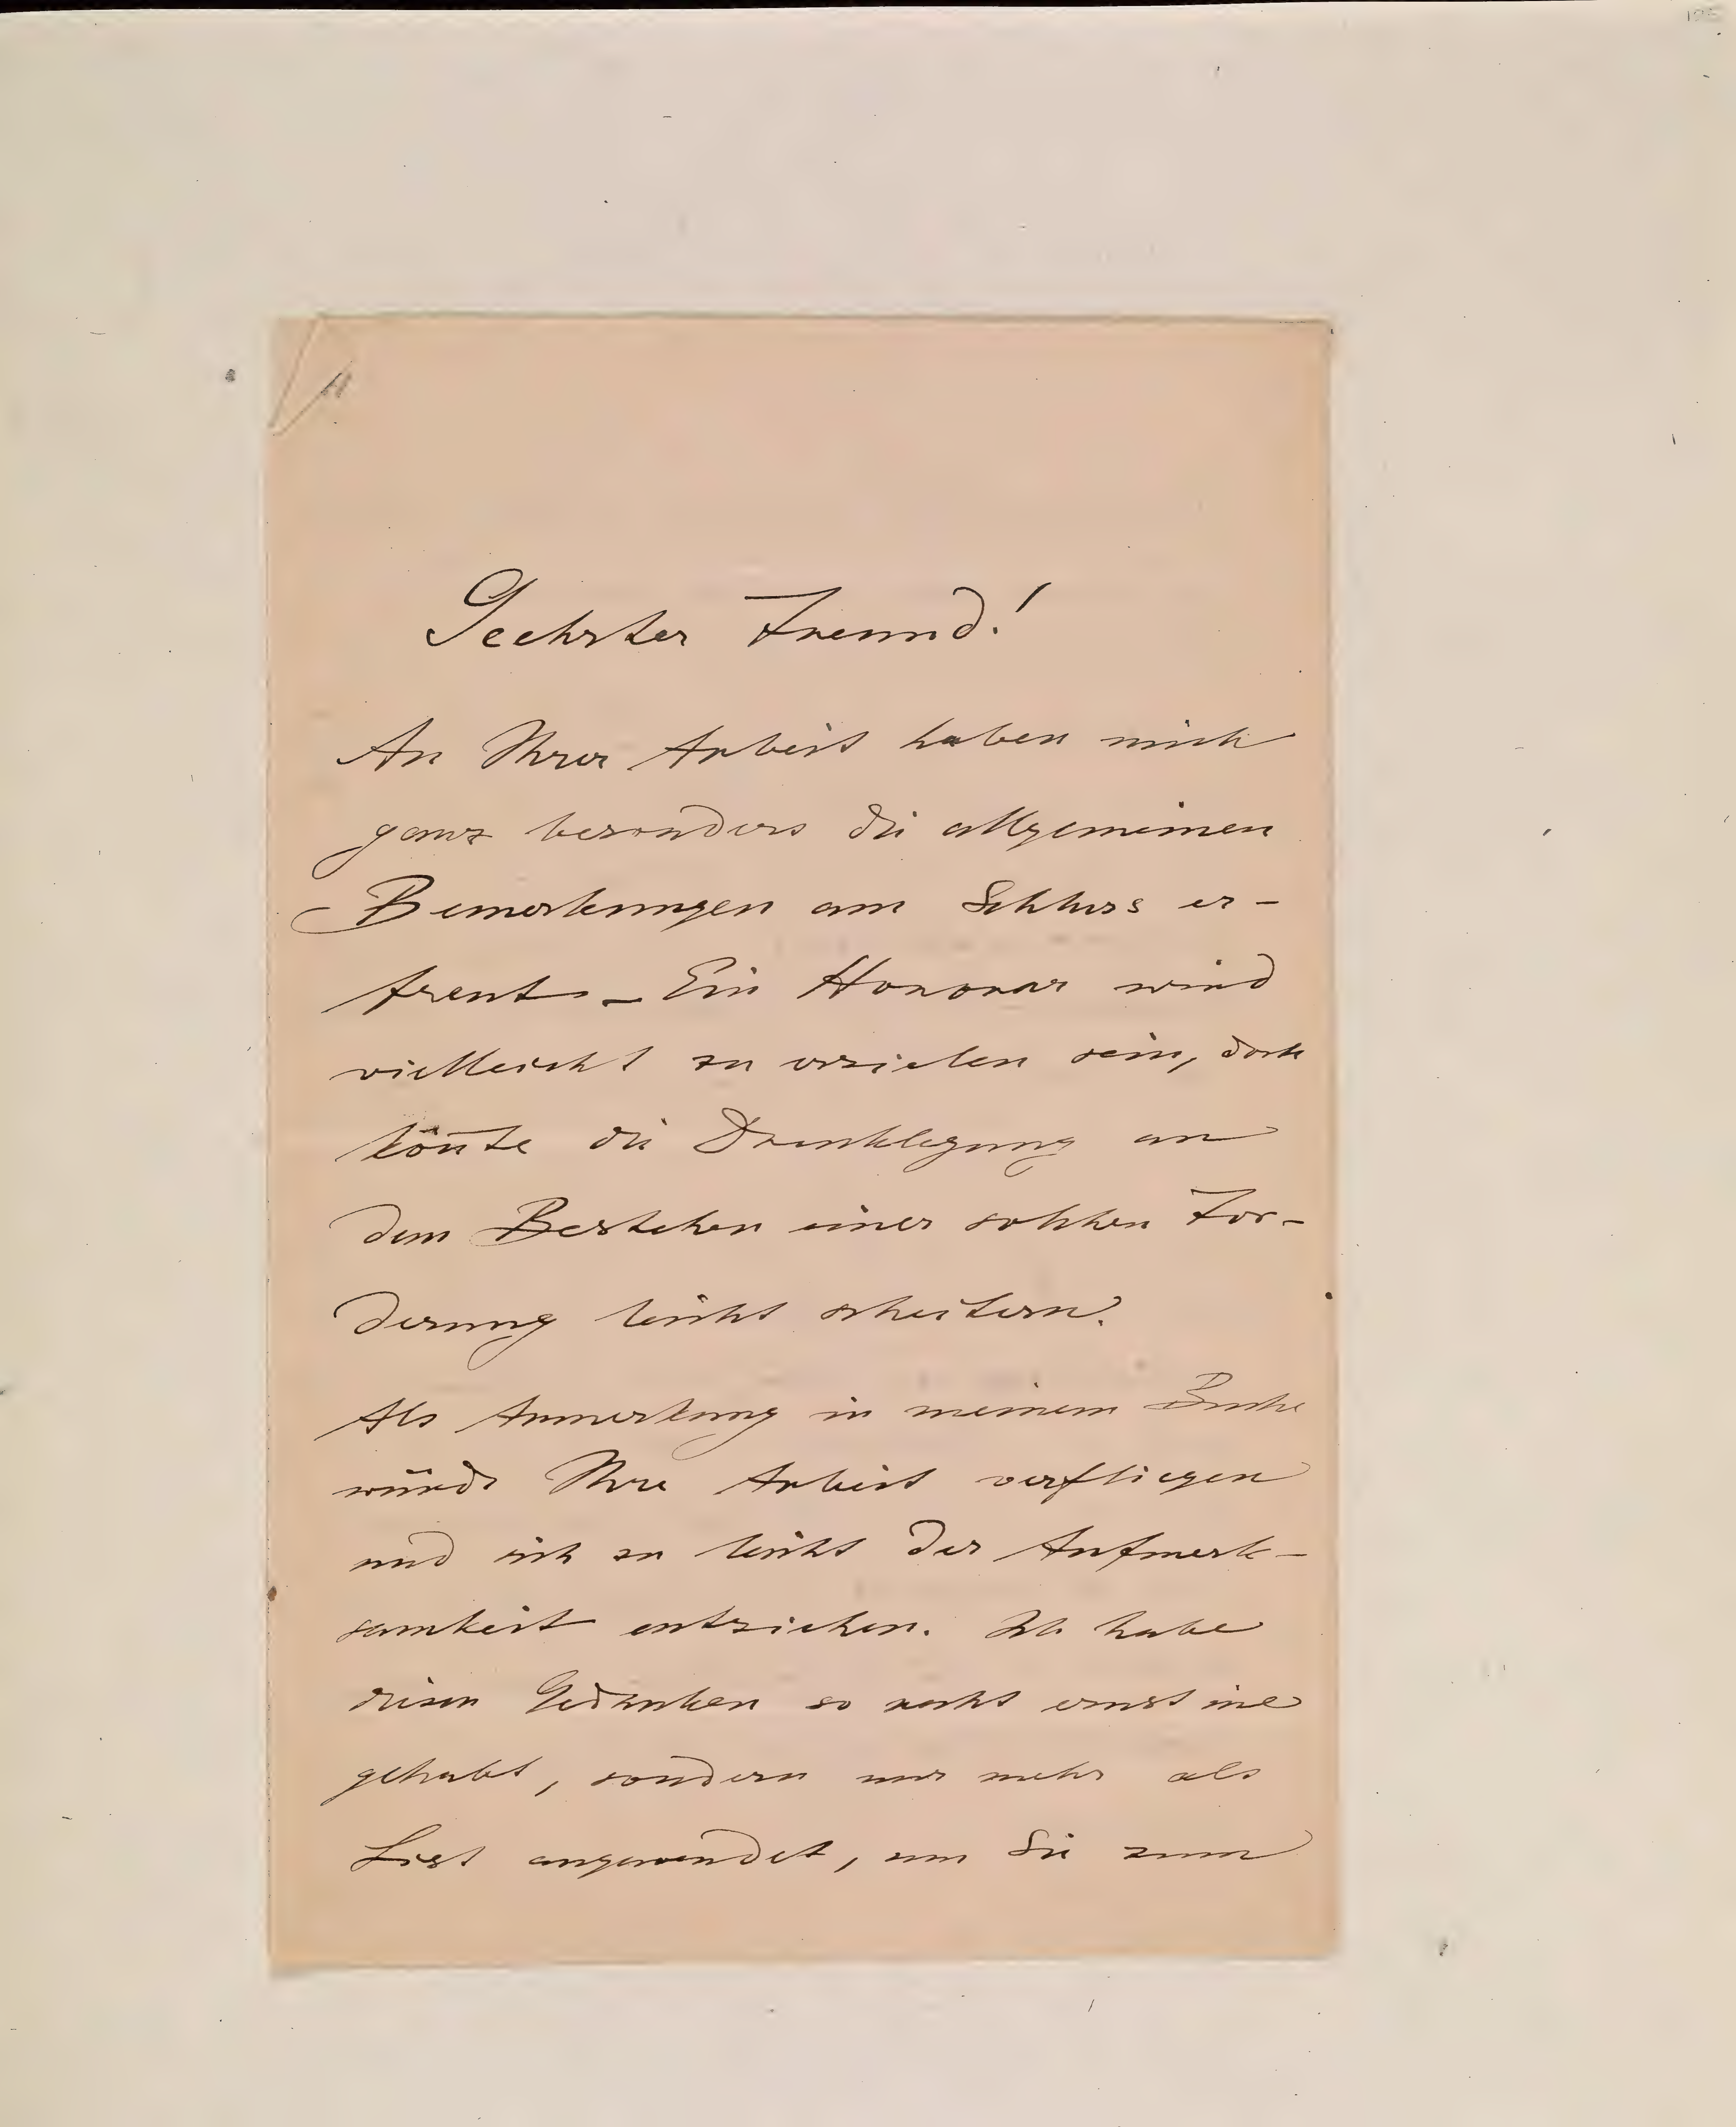 Geehrter Freund!
An Ihrer Arbeit haben mich
ganz besonders die allgemeinen
Bemerkungen am Schluss er-
freut. – Ein Honorar wird
vielleicht zu erzielen sein, doch
könnte die Drucklegung an
dem Bestehen einer solchen For-
derung leicht scheitern.
Als Anmerkung in meinem Buche
würde Ihre Arbeit verfliegen
und sich zu leicht der Aufmerk-
samkeit entziehen. Ich habe
diesen Gedanken so recht ernst nie
gehabt, sondern nur mehr als
List angewendet, um Sie zum